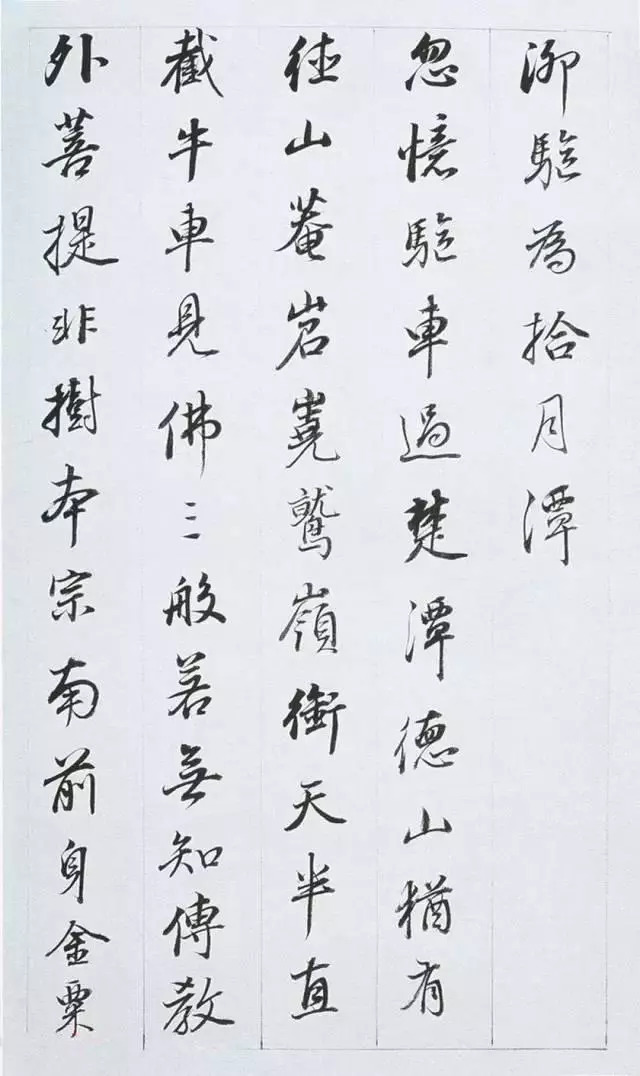 泖駈為拾月潭
忽憶駈車過楚潭德山猶有
住山菴岧嶤鷲嶺銜天半直
截牛車見佛三般若無知傳教
外菩提非樹本宗南前身金粟